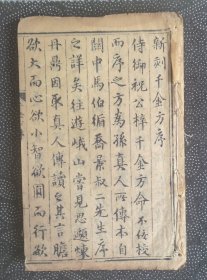 新刻千金方序
侍御祝公梓千金方命不佞校
而序之方為孫真人所傳本自
關中馬伯循喬景叔二先生序
之詳矣往遊峨山嘗見思邈煉
丹鼎因取真人傳讀之其言膽
欲大而心欲小智欲圓而行欲